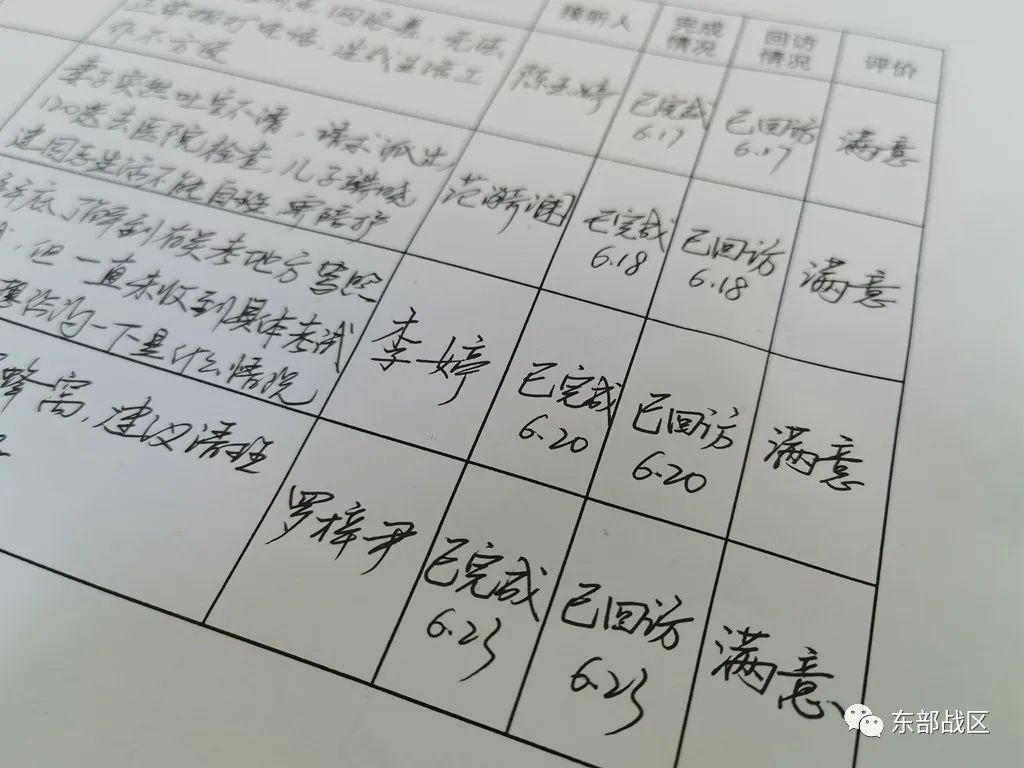 接听人 完成情况 回访情况 评价
正常拨打电话，造成生活工
作不方便
陈玉婷 已完成 6.17 已回访 6.17 满意
妻子突然吐字不清，请求派出
120送去医院检查，儿子
建国志生活不能自理 需陪护
已完成 6.18 已回访 6.18 满意
了解到有关本地方
但一直未收到具体考试
想咨询一下是什么情况
李婷 已完成 6.20 已回访 6.20 满意
蜂窝，建议清理
罗梓尹 已完成 6.23 已回访 6.23 满意
东部战区